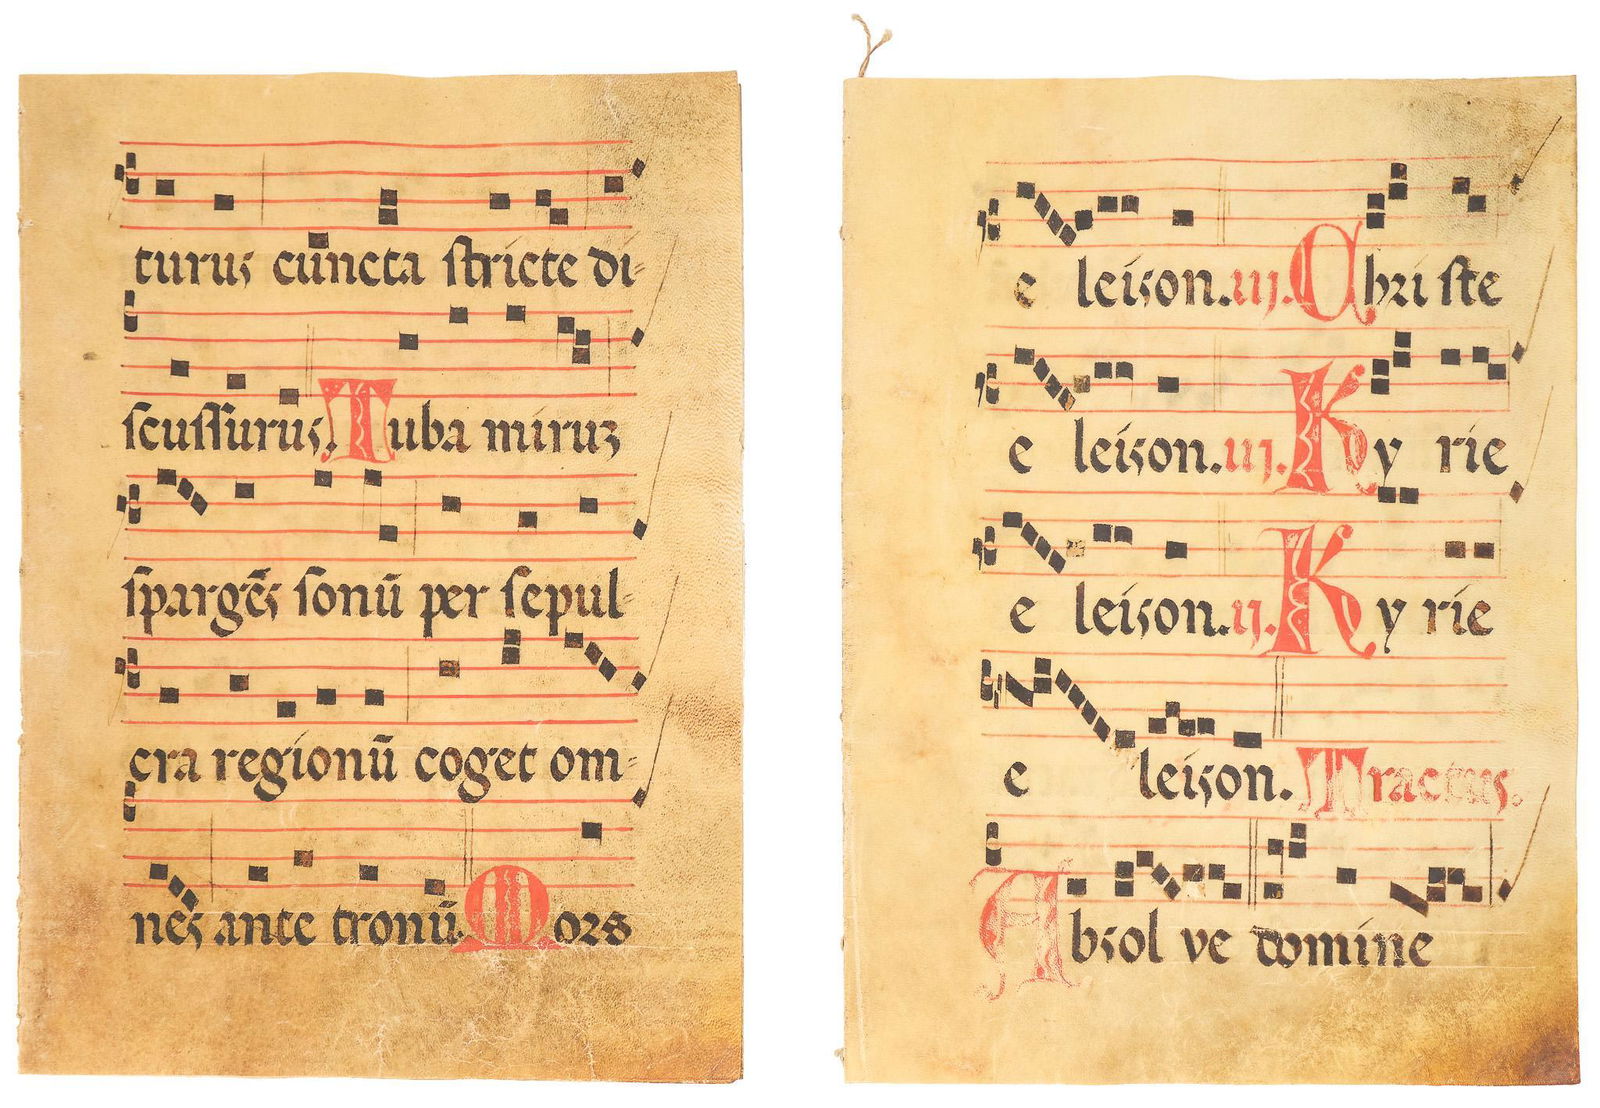 turus cuncta stricte di=
scussurus. Tuba miruz
spargēs sonū per sepul=
cra regionū coget om=
nes ante tronū. Mors
e leison. iij. Christe
e leison. iij. Ky rie
e leison. ij. Ky rie
e leison. Tractus.
Absol ve domine